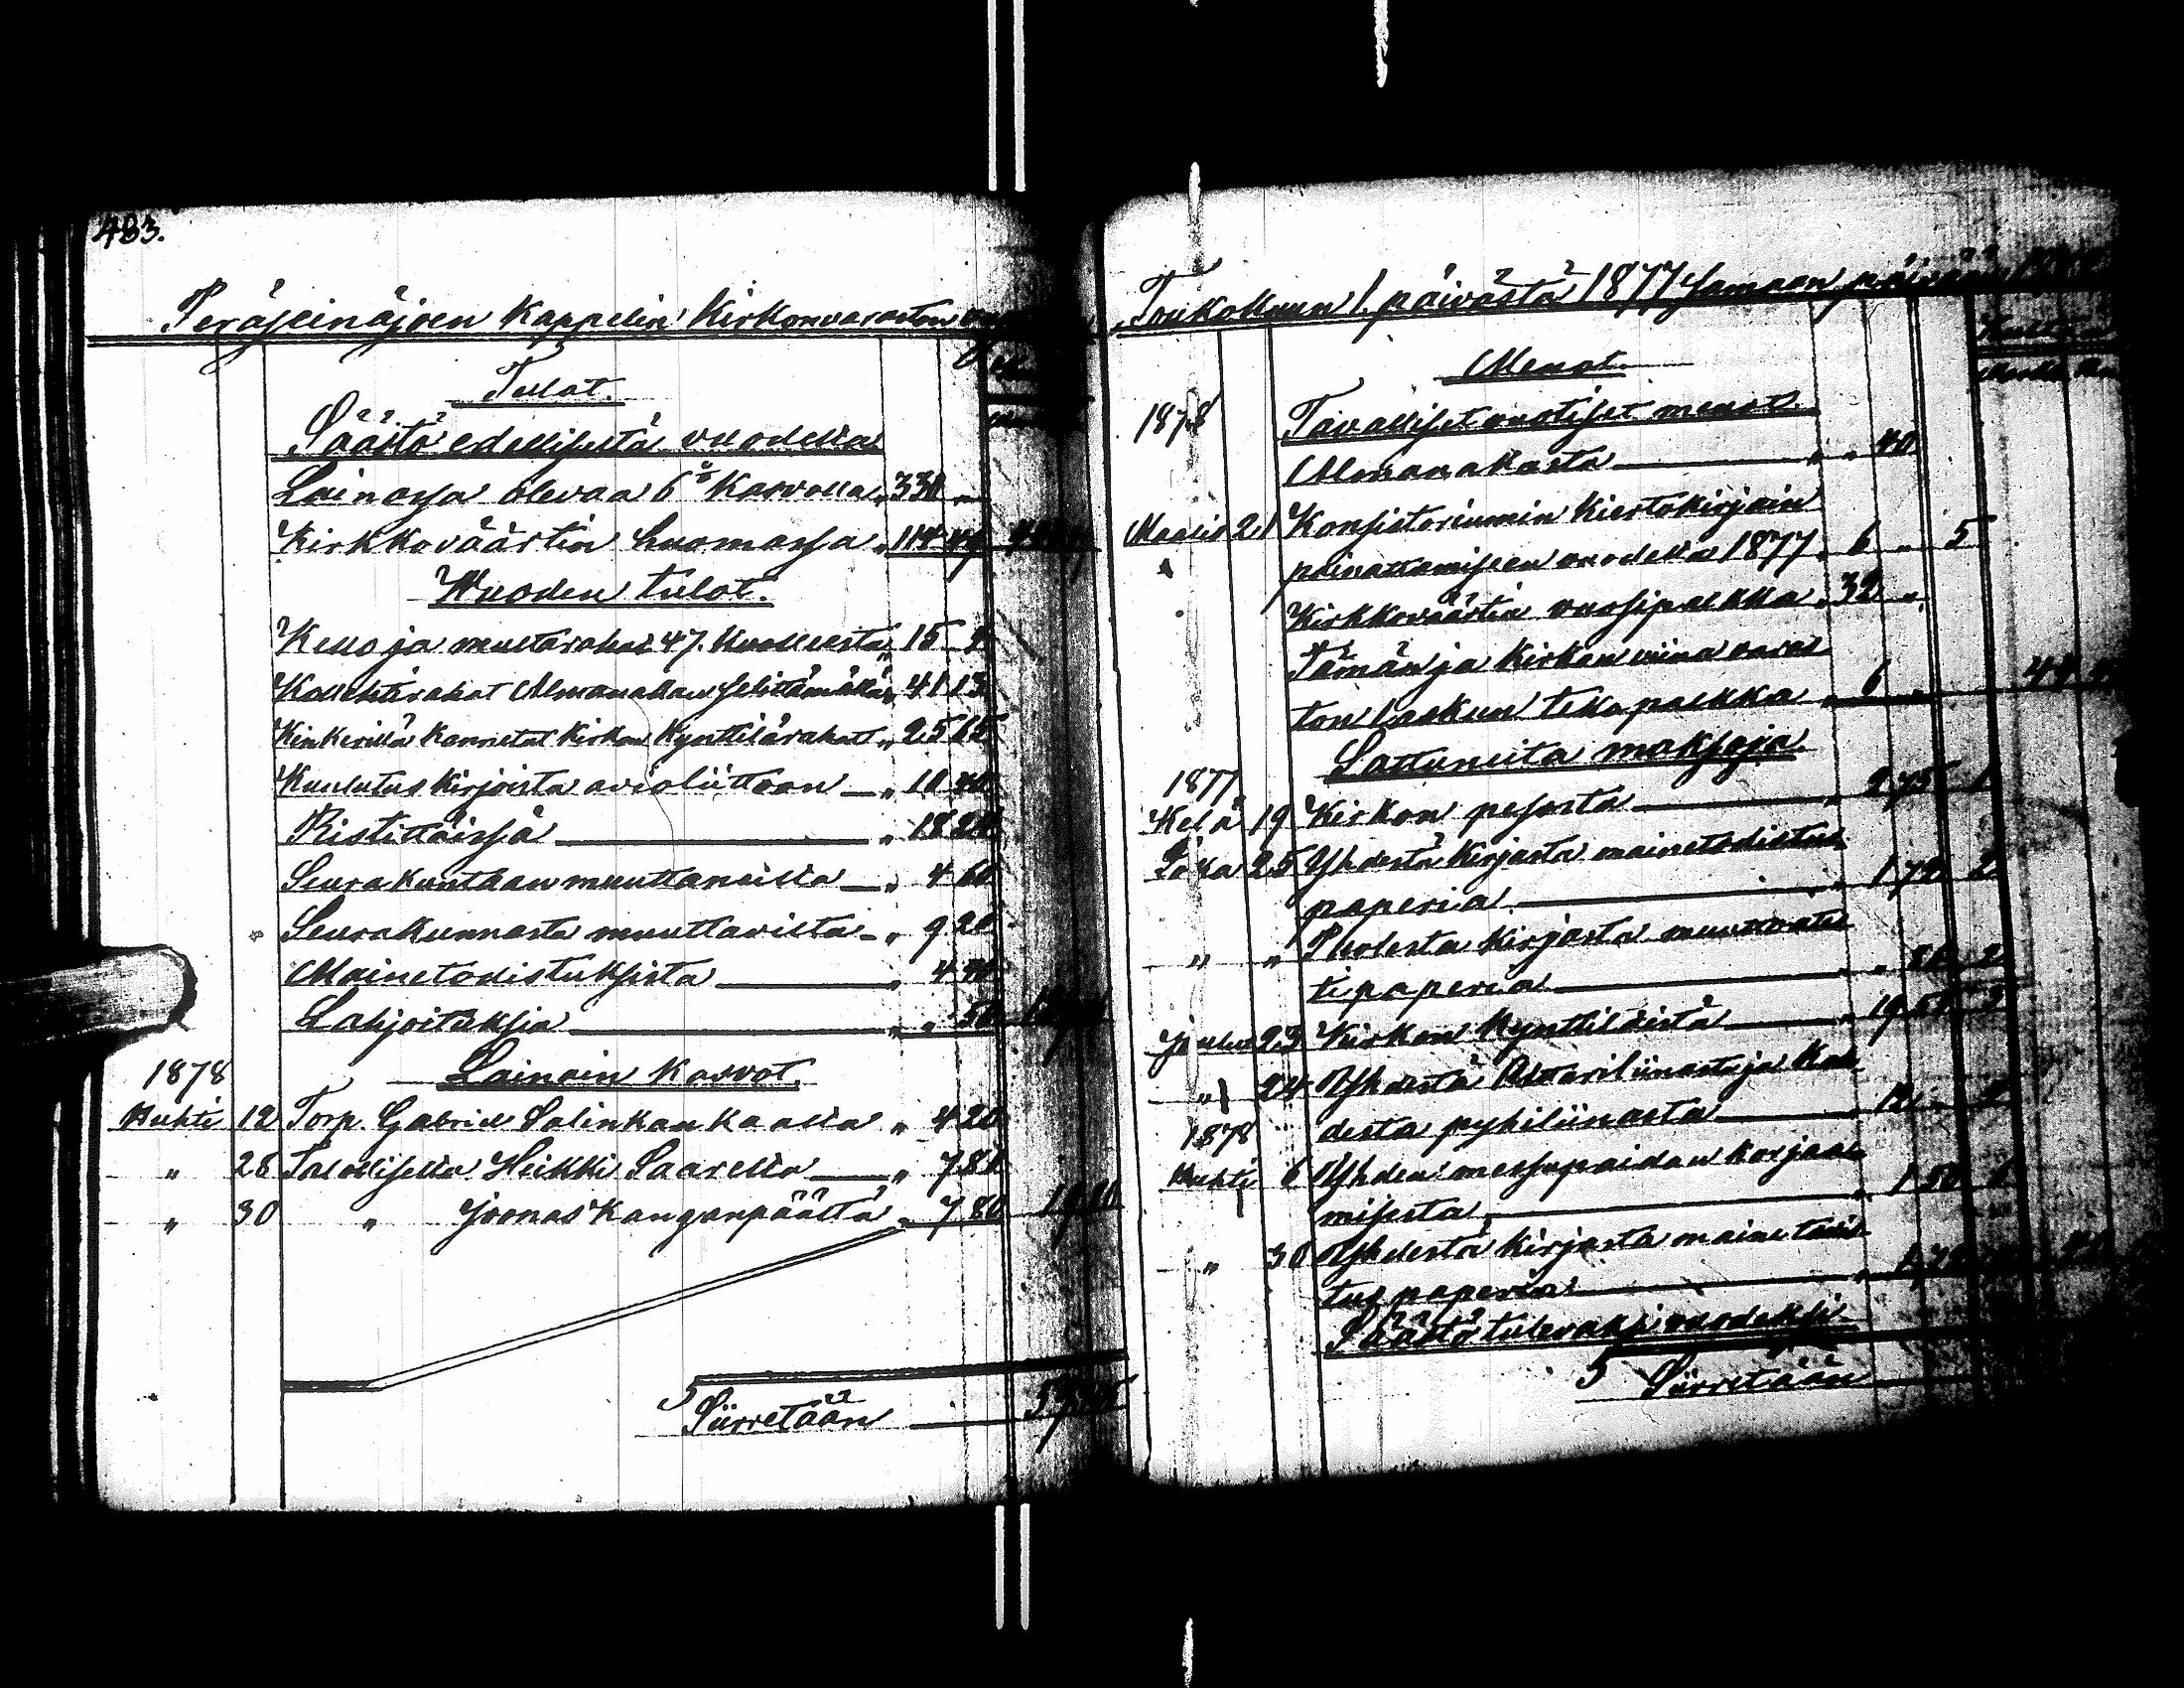 483.
Peräseinäjoen Kappelin Kirkonvaraston
Tulot.
Säästö edellisestä vuodelta
Lainassa olevaa 6% Kasvolla „ 330 „
Kirkkoväärtin huomassa „ 114
Wuoden tulot.
Kello ja multarahat 47. Kuolleesta „ 15
Kollehtirahat Almanakan selittämällä „ 41 13
Kinkerillä Kannetut Kirkon Kynttilärahat „ 25 65
Kuulutus Kirjoista avioliittoon „ 10 40
Ristittäissä „ 18 20
Seurakuntaan muuttaneilta „ 4 60
Seurakunnasta muuttavilta „ 9 20
Mainetodistuksista „ 4 40
Lahjoituksia „ „ 50
1878 Lainain Kasvot.
Huhti 12 Torp. Gabriel Salinkankaalta „ 4 20
„ 26 Talolliselta Heikki Saarelta „ 7 80
„ 30 „ Joonas Kanganpäältä „ 7 80 19 80
Siirretään
Toukokuun 1. päivästä 1877 samaan päivään
Menot.
1878 Tavalliset vuotiset menot.
Almanakasta „ „ 40
Maalis 21 Konsistoriumin Kiertokirjain
painattamiseen vuodelta 1877 „ 6 „ 5
Kirkkoväärtin vuosipalkka „ 32 „
Tämän ja Kirkon viina varas
ton laskun teko palkka „ 6 „
Sattuneita maksoja.
1877
Kesä 19 Kirkon pesosta „ 2 75 1
Loka 25 Yhdestä Kirjasta mainetodistus
paperia „ 1 72 2
„ „ Puolesta Kirjasta muuttoates
ti paperia „ „ 2
Joulu 23 Kirkon Kynttilöistä „ 19 3
„ 24 Yhdestä Altariliinasta ja Kah
desta pyhiliinasta „ 12
1878
Huhti 6 Yhden messupaidan korjaa
misesta „ 1 50
„ 30 Yhdestä Kirjasta maine todis
tus paperia „ 1 72
Säästö tulevaksi vuodeksi
Siirretään